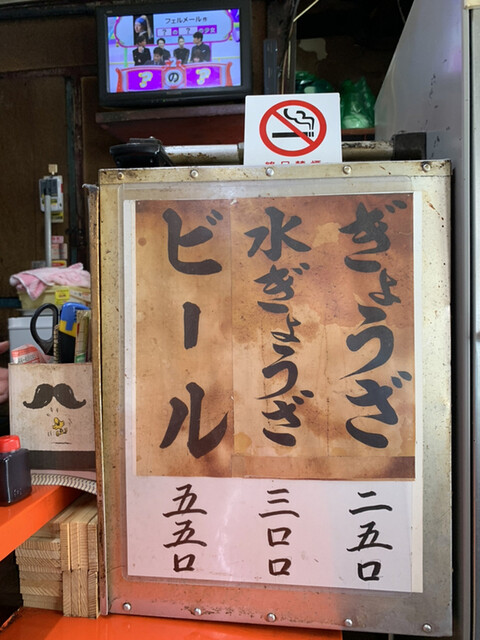 フェルメール作
?の?
ぎょうざ
二五〇
水ぎょうざ
三〇〇
ビール
五五〇